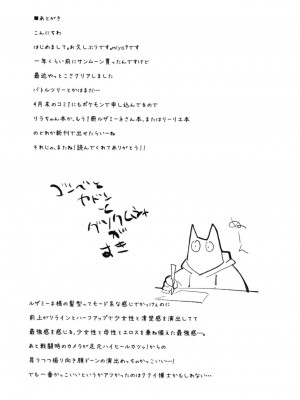 ■あとがき
こんにちわ
はじめまして。お久しぶりです。miyo?です
一年くらい前にサンムーン買ったんですけど
最近やっとこさクリアしました
バトルツリーとかはまだ…
4月末のコミ?にもポケモンで申し込んでるので
リラちゃん本か、もう1冊ルザミーネさん本、またはリーリエ本
のどれか新刊で出せたらいーね
それじゃ、またね!読んでくれてありがとう!!
ゴンベと
ヤドンと
グソクムシャ
が
すき
ぬーん
ルザミーネ様の髪型ってモード系な感じでかっけぇのに
前上がりラインとハーフアップで少女性と清楚感を演出してて
最強感を感じる。少女性と母性とエロスを兼ね備えた最強感…。
あと戦闘時のカメラが足元ハイヒールカツッ!からの
耳うつつ振り向き顔ドーンの演出めっちゃかっこいい…!
でも一番かっこいいというかアツかったのはククイ博士かもしれない…